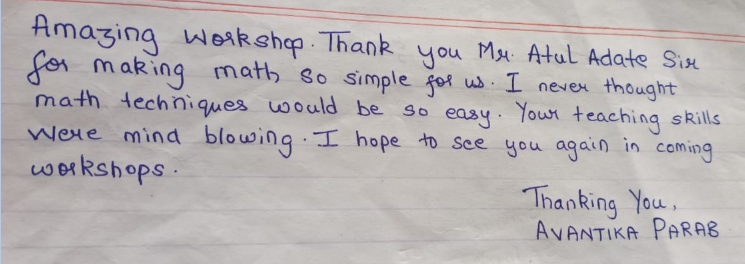 Amazing Workshop. Thank you Mr. Atul Adate Sir
for making math so simple for us. I never thought
math techniques would be so easy. Your teaching skills
were mind blowing. I hope to see you again in coming
workshops.
Thanking You,
AVANTIKA PARAB